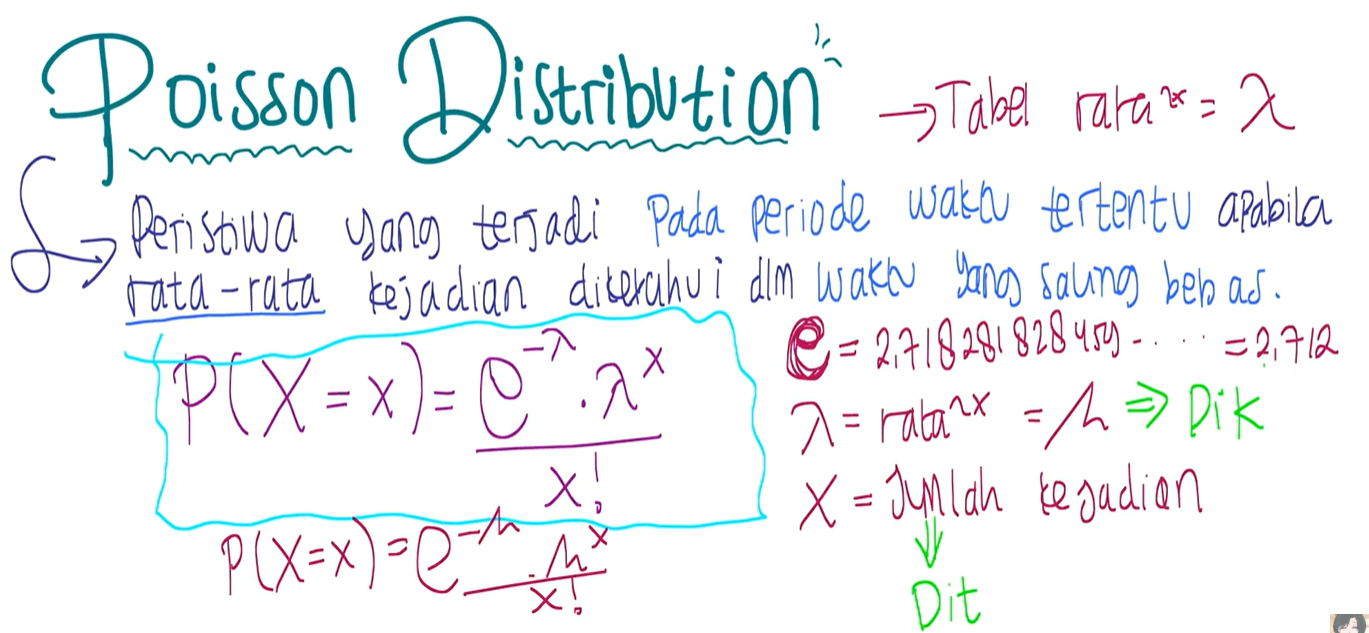 Poisson Distribution
→ Tabel rata²ˣ = λ
Peristiwa yang terjadi Pada periode waktu tertentu apabila
rata-rata kejadian diketahui dlm waktu yang saling bebas.
P(X = x) = e^-λ . λ^x / x!
e = 2,718281828459 - .... = 2,712
λ = rata²ˣ = μ ⇒ Dik
X = Jumlah kejadian
⇓
Dit
P(X=x) = e^-μ . μ^x / x!